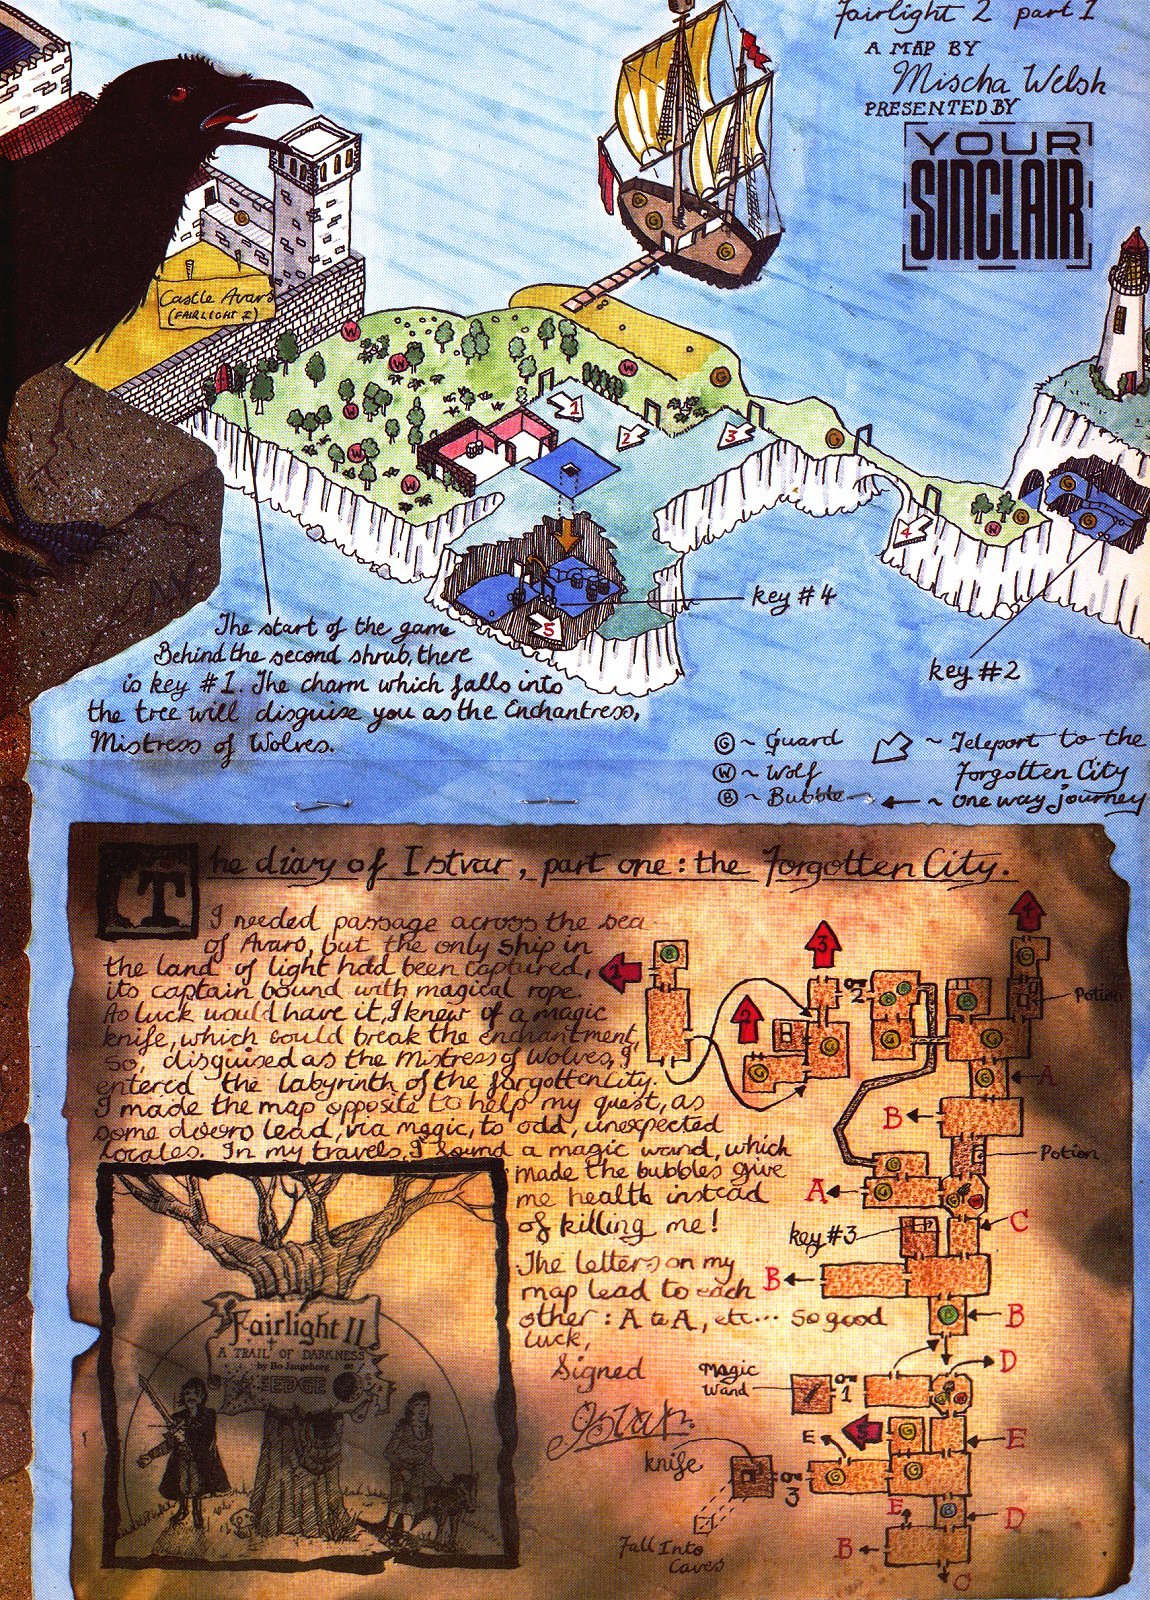 Fairlight 2 part 1
A MAP BY
Mischa Welsh
PRESENTED BY
YOUR
SINCLAIR
Castle Avars
(FAIRLIGHT I)
G
G
G
G
W
W
W
W
W
W
G
G
W
G
G
G
1
2
3
4
5
key #4
key #2
The start of the game
Behind the second shrub, there
is key #1. The charm which falls into
the tree will disguise you as the Enchantress,
Mistress of Wolves.
G ~ Guard
W ~ Wolf
B ~ Bubble
~ Teleport to the
Forgotten City
~ one way journey
The diary of Istvar, part one: the Forgotten City.
I needed passage across the sea
of Avars, but the only ship in
the land of light had been captured,
its captain bound with magical rope.
As luck would have it, I knew of a magic
knife, which could break the enchantment,
so, disguised as the Mistress of Wolves, I
entered the labyrinth of the forgotten city.
I made the map opposite to help my quest, as
some doors lead, via magic, to odd, unexpected
locales. In my travels, I found a magic wand, which
made the bubbles give
me health instead
of killing me!
The letters on my
map lead to each
other: A to A, etc... So good
luck,
Signed
Istvar.
Fairlight II
A TRAIL OF DARKNESS
by Bo Jangeborg
THE EDGE
1
2
3
4
2
Potion
A
B
Potion
A
C
key #3
B
B
D
Magic
Wand
1
5
E
E
knife
3
E
D
B
C
Fall Into
Caves